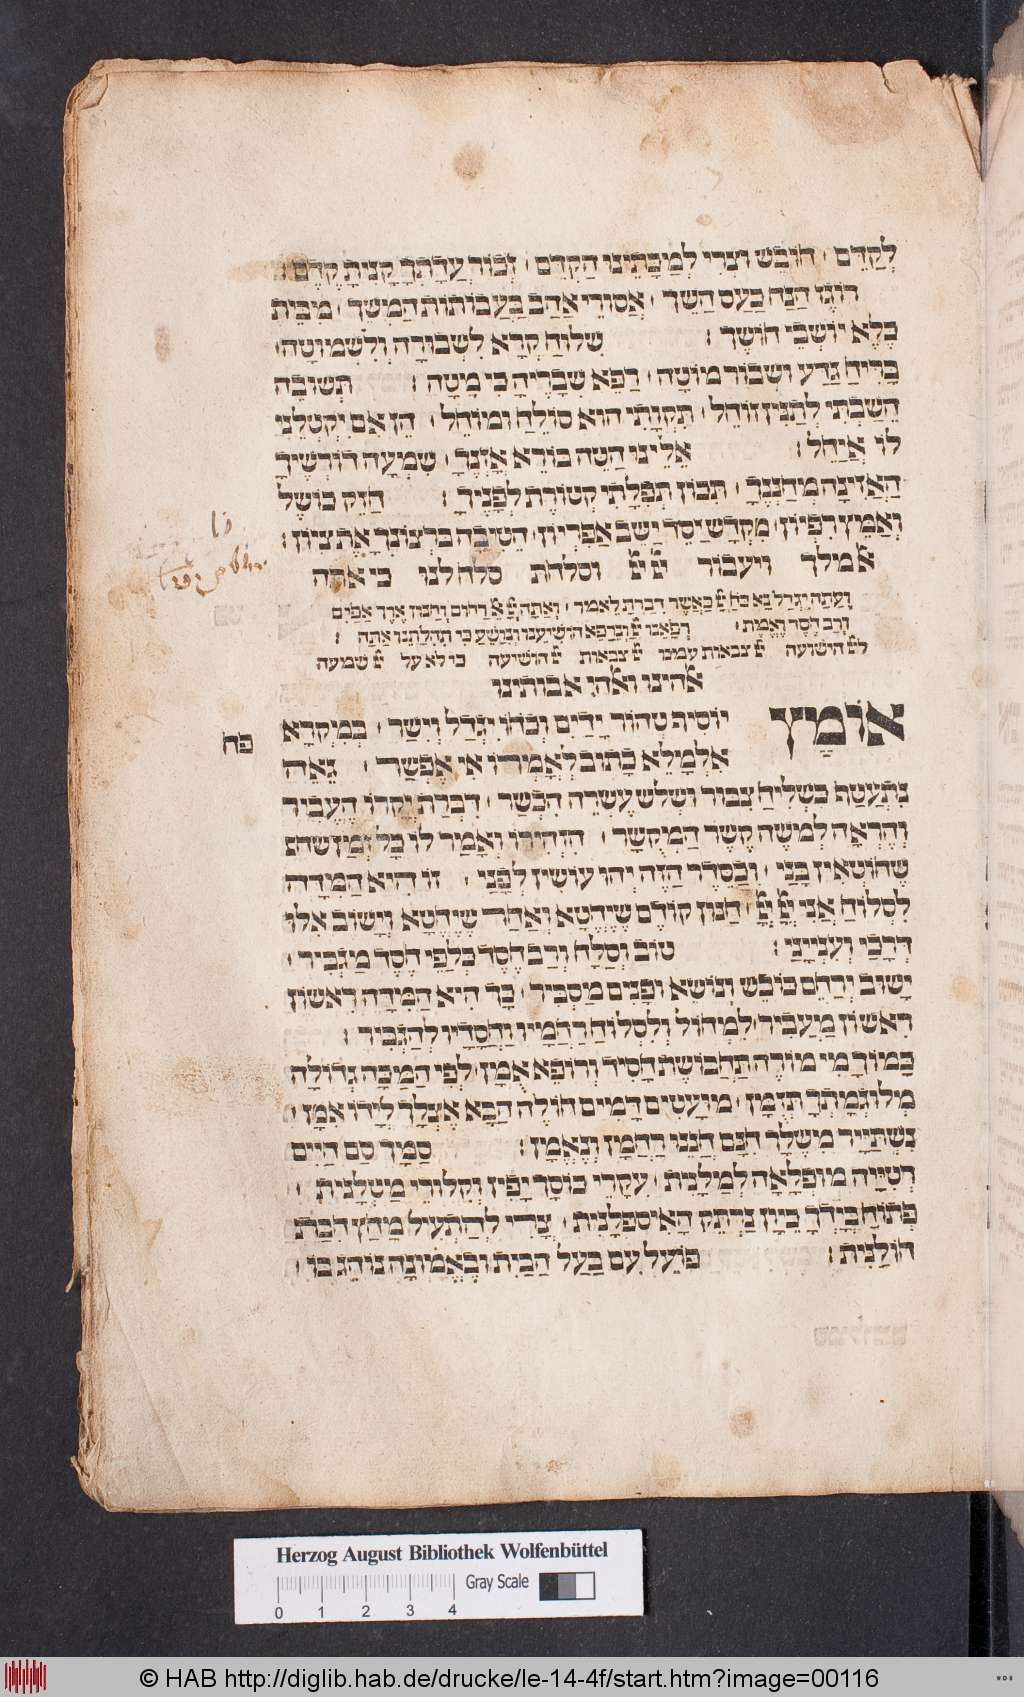 לְקַדֵּם · חוֹבֵשׁ וצרי לְמַכָּתֵינוּ הַקְדֵּם · זְכוֹר עֲדָתְךָ קָנִיתָ קֶדֶם :
רוֹגֶז הַנַּח כַּעַס הַשֵּׁךְ · אֲסוּרֵי אַהַב בַּעֲבוֹתוֹת הַמְשֵׁךְ · מִבֵּית
כֶּלֶא יוֹשְׁבֵי חוֹשֶׁךְ : שִׁלּוּחַ קְרָא לִשְׁבוּרָה וְלִשְׁמוּטָה ·
בְּרִיחַ גַּדַּע ושבור מוֹטָה · רַפֵּא שְׁבָרֶיהָ כִּי מָטָה : תְּשׁוּבָה
הֵשַׁבְתִּי לְתַנִּין זוֹחֵל · תִּקְוָתִי הוּא סוֹלֵחַ וּמוֹחֵל · הֵן אִם יִקְטְלֵנִי
לוֹ אֲיַחֵל : אֵלֵינוּ הַטֵּה בּוֹרֵא אָזְנֶךָ · שִׁמְעָה דוֹרְשֶׁיךָ
הַאֲזִינָה מְחַנְּנֶךָ · תִּכּוֹן תְּפִלָּתִי קְטוֹרֶת לְפָנֶיךָ : חַזֵּק כּוֹשֵׁל
וְאַמֵּץ רִפְיוֹן · מִקְדָּשׁ יַסֵּד יֵשֵׁב אַפִּרְיוֹן · הֵטִיבָה בִרְצוֹנְךָ אֶת צִיּוֹן :
א מלך ויעבור יי יי וסלחת סלח לנו כי אתה
וְעַתָּה יִגְדַּל נָא כֹּחַ יי כַּאֲשֶׁר דִּבַּרְתָּ לֵאמֹר · וְאַתָּה יי אֵל רַחוּם וְחַנּוּן אֶרֶךְ אַפַּיִם
וְרַב חֶסֶד וֶאֱמֶת : רְפָאֵנוּ יי וְנֵרָפֵא הוֹשִׁיעֵנוּ וְנִוָּשֵׁעָה כִּי תְהִלָּתֵנוּ אָתָּה :
ליי הישועה יי צבאות עמנו יי צבאות יי הושיעה כי לא על יי שמעה
אלהינו ואלהי אבותינו
אוֹמֶץ יוֹסִיף טְהוֹר יָדַיִם וְכֹחוֹ יִגְדַּל וְיִשַּׁר · בְּמִקְרָא
כח
אִלְמָלֵא כָּתוּב לְאָמְרוֹ אִי אֶפְשַׁר · גֵּאֶה
נִתְעַטֵּף כִּשְׁלִיחַ צִבּוּר וּשְׁלֹשׁ עֶשְׂרֵה הִכְשַׁר · דִּבְּרוֹת יְקָרוֹ הֶעֱבִיר
וְהֶרְאָה לְמֹשֶׁה קֶשֶׁר הַמְקֻשָּׁר · הִזְהִירוֹ וְאָמַר לוֹ כָּל זְמַן שהן
שֶׁחוֹטְאִין בָּנַי · וּכַסֵּדֶר הַזֶּה יְהוּ עוֹשִׂין לְפָנַי · זוֹ הִיא הַמִּדָּה
לִסְלוֹחַ אֲנִי יי יי · חַנּוּן קוֹדֶם שֶׁיֶּחֱטָא וְאַחַר שֶׁיֶּחֱטָא וְיָשׁוּב אֵלַי
דְּרָכַי וְעִנְיָנַי : טוֹב וְסַלָּח וְרַב חֶסֶד כְּלַפֵּי חֶסֶד מַגְבִּיר ·
יָשׁוּב יְרַחֵם כּוֹבֵשׁ וְנוֹשֵׂא וּפָנִים מַסְבִּיר · כָּךְ הִיא הַמִּדָּה רִאשׁוֹן
רִאשׁוֹן מַעֲבִיר · לִמְחוֹל וְלִסְלוֹחַ רַחֲמָיו וַחֲסָדָיו לְהַגְבִּיר :
כָּמוֹךָ מִי מוֹרֶה תַּחְבּוֹשֶׁת חָסִיד וְרוֹפֵא אֻמָּן · לְפִי הַמַּכָּה גְּדוֹלָה
מְלוּגְמָתְךָ תְּזַמָּן · מוּעָטִים דָּמִים חוֹלֶה הַבָּא אֶצְלְךָ לְיָדוֹ אֻמָּן ·
נִשְׁתַּיֵּיר מִשֶּׁלְּךָ חִנָּם הִנְּנוּ רַחֲמָן וְנֶאֱמָן : סַמְּךָ סַם חַיִּים
רְטִיָּיה מוּפְלָאָה לְמַלָּנִית · עִקְּרֵי כּוֹסָךְ יָפִין וְקִלּוּרֵי מַעְלָנִית ·
פָּתוּחַ בְּיָדְךָ כֵּיוָן נַרְתֵּק הָאִיסְפְּלָנִית · צֳרִי לְהִתְעִיל מַחַץ הַבַּת
חוֹלָנִית : פּוֹעֵל עִם בַּעַל הַבַּיִת וּבֶאֱמוּנָה נוֹהֵג בּוֹ ·
Herzog August Bibliothek Wolfenbüttel
Gray Scale
0 1 2 3 4
© HAB http://diglib.hab.de/drucke/le-14-4f/start.htm?image=00116